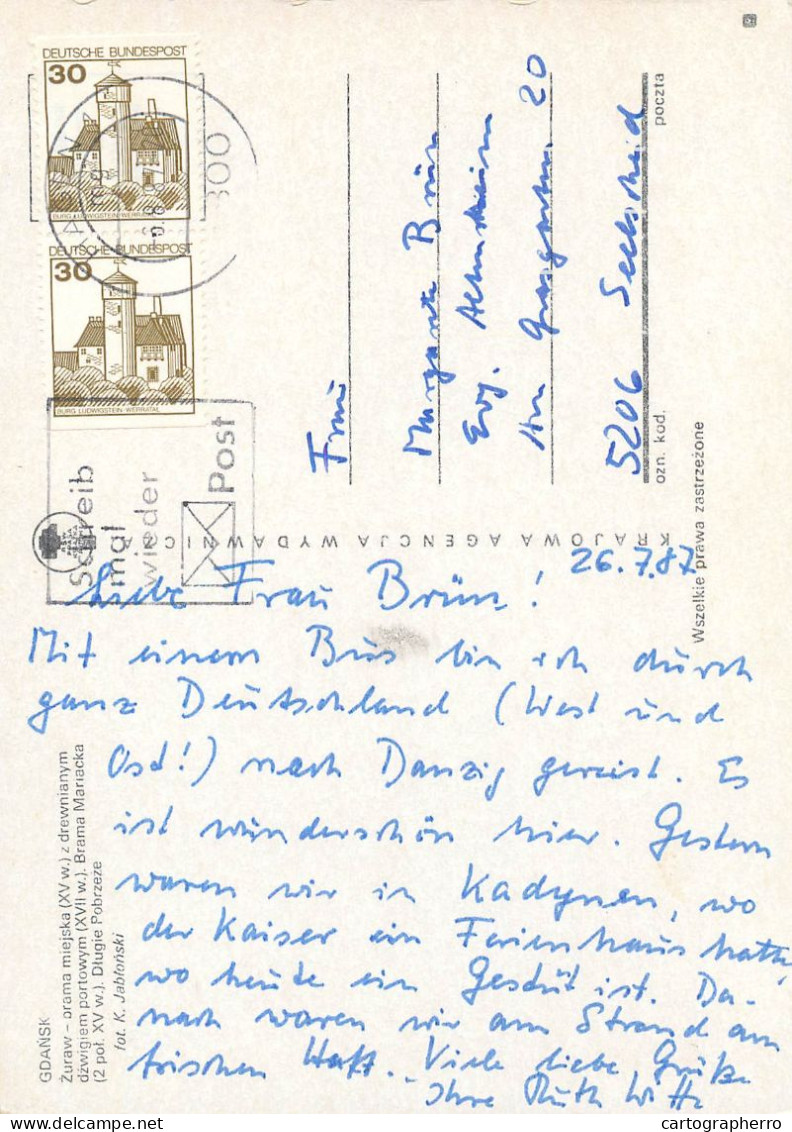 DEUTSCHE BUNDESPOST
30
BURG LUDWIGSTEIN WERRATAL
DEUTSCHE BUNDESPOST
30
BURG LUDWIGSTEIN WERRATAL
300
Schreib
mal
wieder
Post
Frau
Margarete Brün
Evg. Altersheim
Am 20
5206 Seelscheid
ozn. kod.
poczta
Wszelkie prawa zastrzeżone
KRAJOWA AGENCJA WYDAWNICZA
26.7.87
Liebe Frau Brün!
Mit einem Bus bin ich durch
ganz Deutschland (West und
Ost!) nach Danzig gereist. Es
ist wunderschön hier. Gestern
waren wir in Kadynen, wo
der Kaiser ein Ferienhaus hatte,
wo heute ein Gestüt ist. Da-
nach waren wir am Strand am
frischen Haff. Viele liebe Grüße
Ihre Ruth Witte
GDAŃSK
Żuraw – brama miejska (XV w.) z drewnianym
dźwigiem portowym (XVII w.). Brama Mariacka
(2 poł. XV w.). Długie Pobrzeże
fot. K. Jabłoński
cartographerro